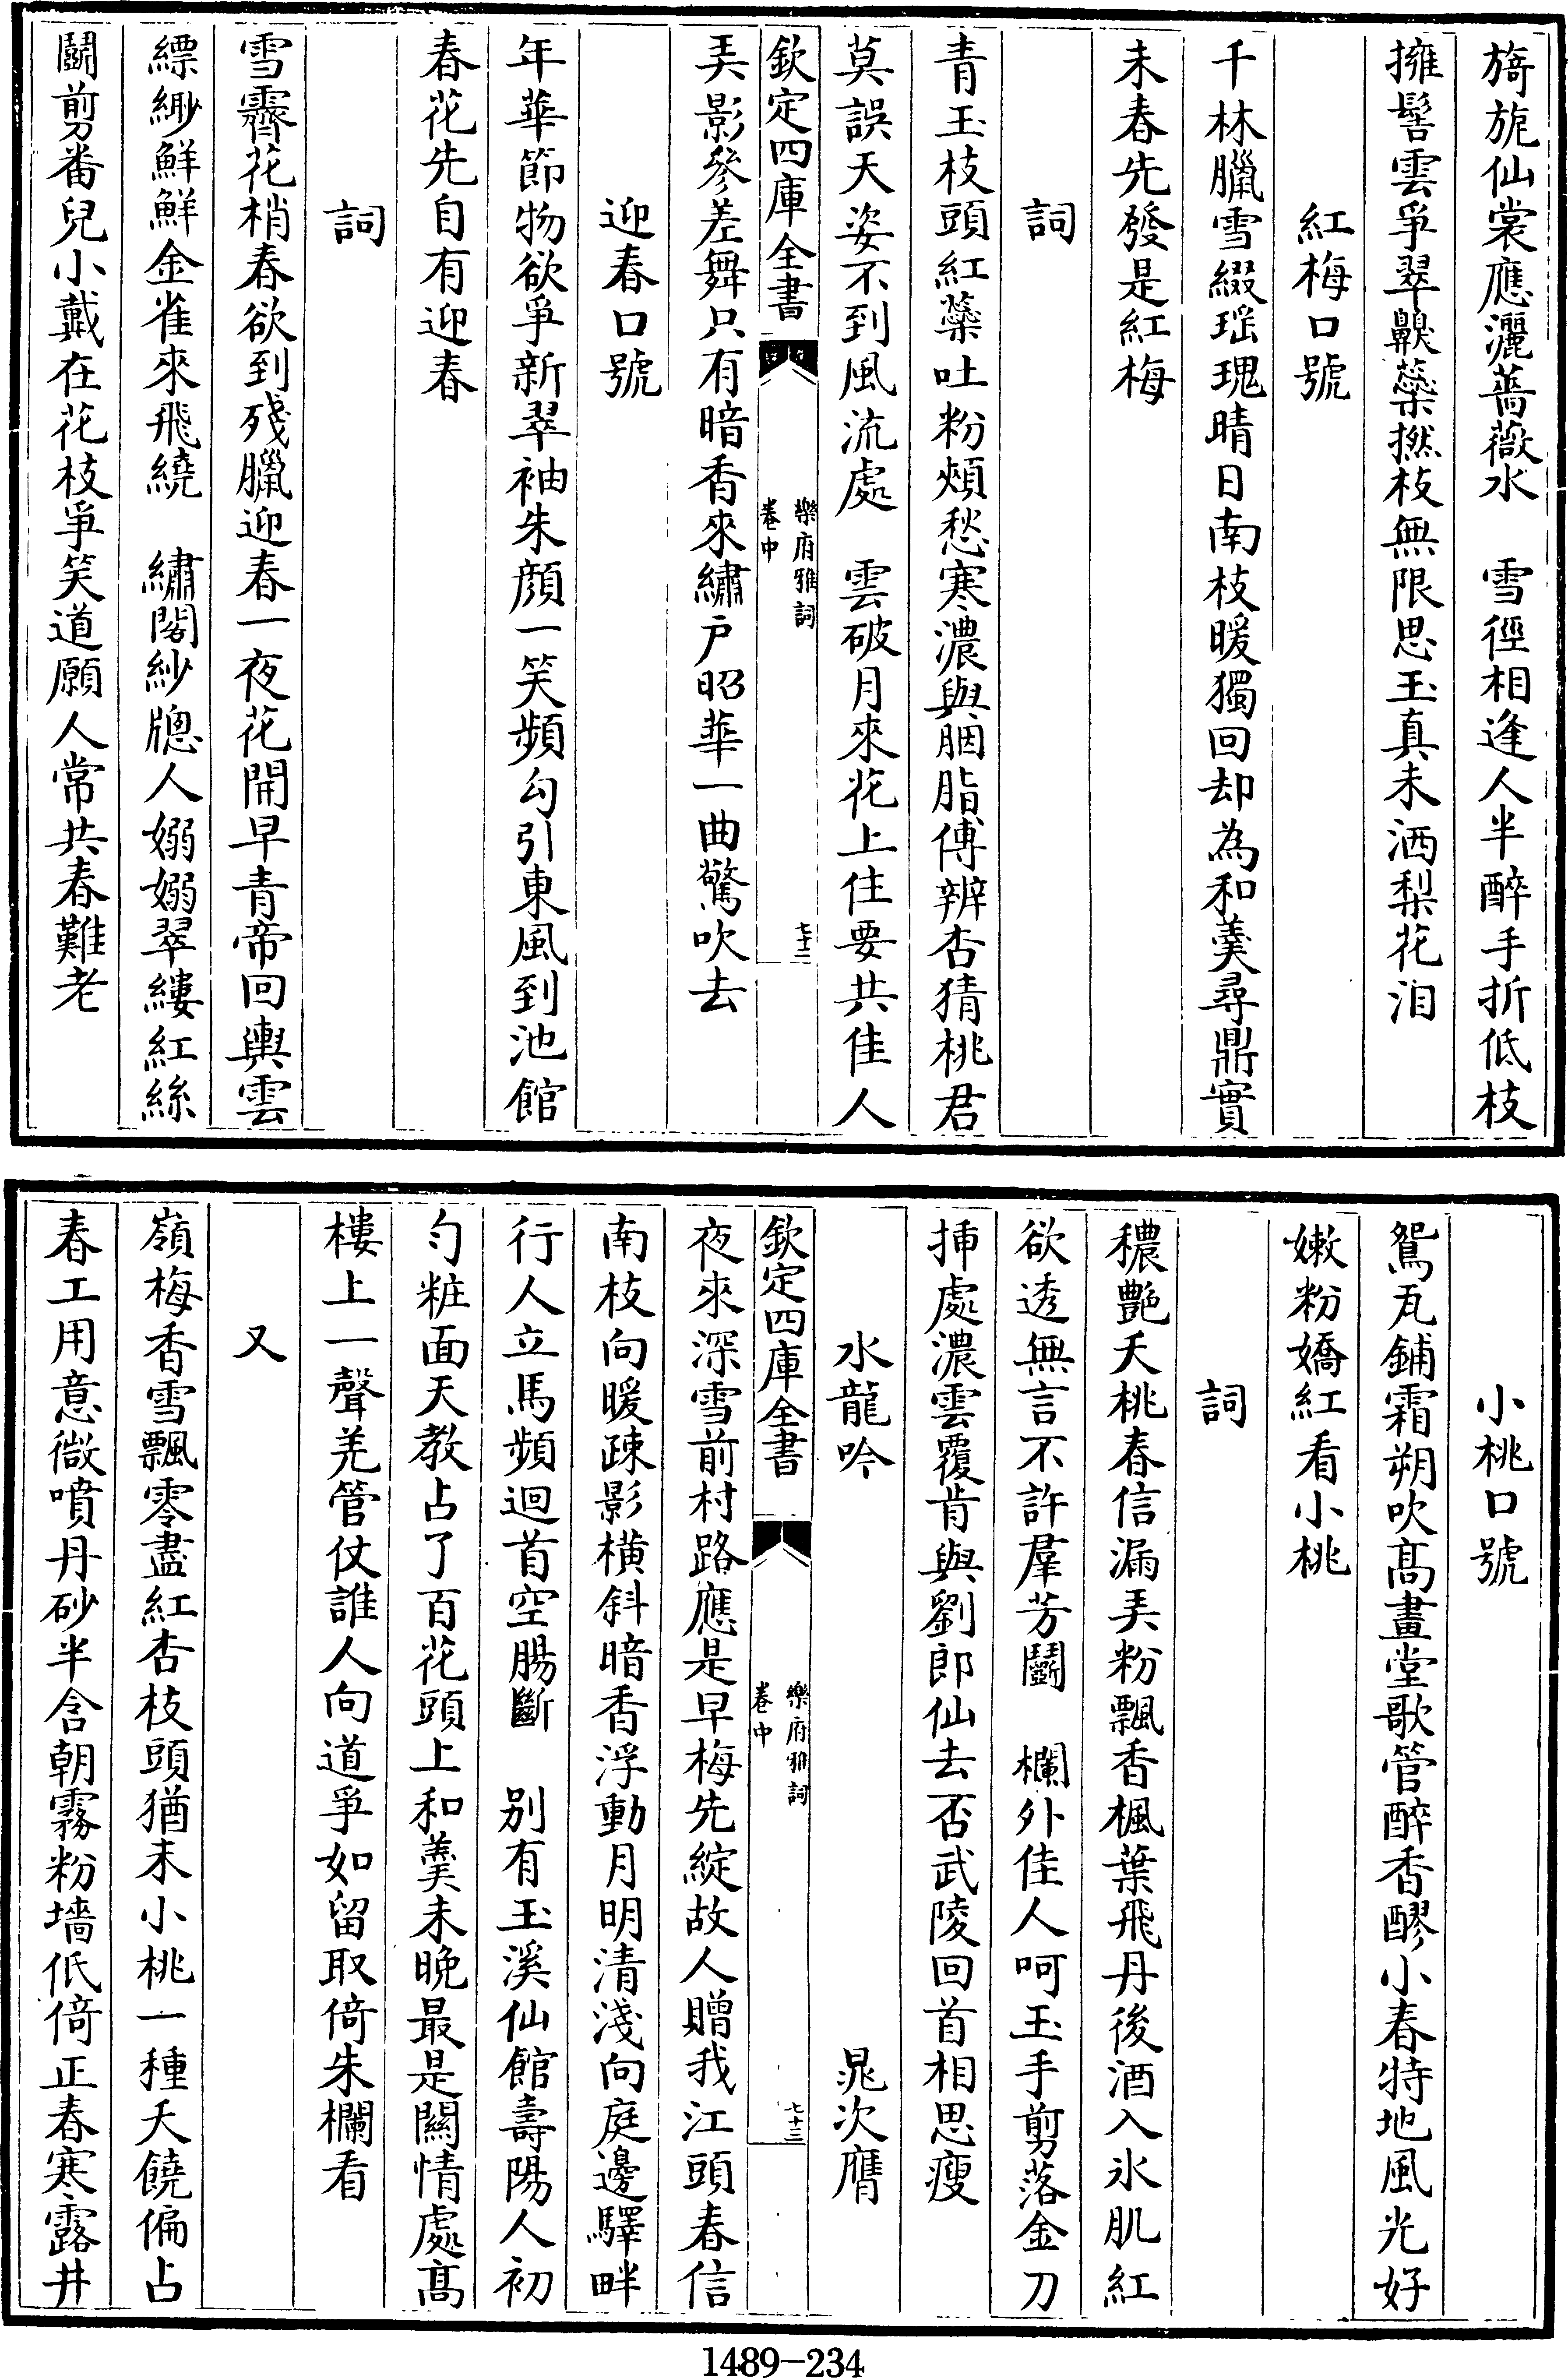 旖旎仙裳應灑薔薇水　雪徑相逢人半醉手折低枝
擁髻雲爭翠齅蘂撚枝無限思玉真未洒梨花淚
紅梅口號
千林臘雪綴瑶瑰晴日南枝暖獨回却為和羮尋鼎實
未春先發是紅梅
詞
青玉枝頭紅蘂吐粉頰愁寒濃與胭脂傅辨杏猜桃君
莫誤天姿不到風流處　雲破月來花上住要共佳人
欽定四庫全書
樂府雅詞
卷中
七十二
弄影參差舞只有暗香來繡戶昭華一曲驚吹去
迎春口號
年華節物欲爭新翠袖朱顔一笑頻勾引東風到池館
春花先自有迎春
詞
雪霽花梢春欲到殘臘迎春一夜花開早青帝回輿雲
縹緲鮮鮮金雀來飛繞　繡閣紗牕人嫋嫋翠縷紅絲
鬭剪番兒小戴在花枝爭笑道願人常共春難老
小桃口號
鴛瓦鋪霜朔吹髙畫堂歌管醉香醪小春特地風光好
嫩粉嬌紅看小桃
詞
穠艷夭桃春信漏弄粉飄香楓葉飛丹後酒入氷肌紅
欲透無言不許羣芳鬭　欄外佳人呵玉手剪落金刀
挿處濃雲覆肯與劉郎仙去否武陵回首相思瘦
水龍吟　晁次膺
夜來深雪前村路應是早梅先綻故人贈我江頭春信
欽定四庫全書
樂府雅詞
卷中
七十三
南枝向暖疎影橫斜暗香浮動月明清淺向庭邊驛畔
行人立馬頻迴首空腸斷　别有玉溪仙館壽陽人初
勻粧面天教占了百花頭上和羮未晚最是關情處髙
樓上一聲羌管仗誰人向道爭如留取倚朱欄看
又
嶺梅香雪飄零盡紅杏枝頭猶未小桃一種夭饒偏占
春工用意微噴丹砂半含朝霧粉墻低倚正春寒露井
1489－234